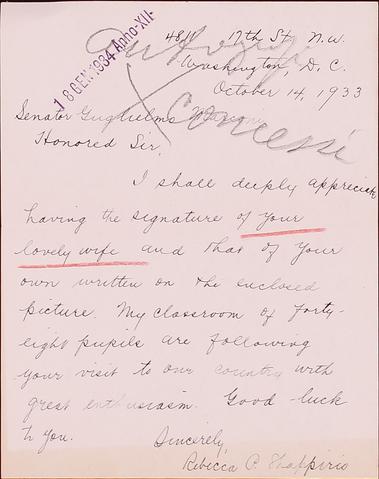 4811 17th St. N.W.
Washington, D.C.
October 14, 1933
18 GEN. 1934 Anno XII
Autografi
concessi
Senator Guglielmo Marconi
Honored Sir,
I shall deeply appreciate
having the signature of your
lovely wife and that of your
own written on the enclosed
picture. My classroom of forty-
eight pupils are following
your visit to our country with
great enthusiasm. Good-luck
to you.
Sincerely,
Rebecca P. Shappirio